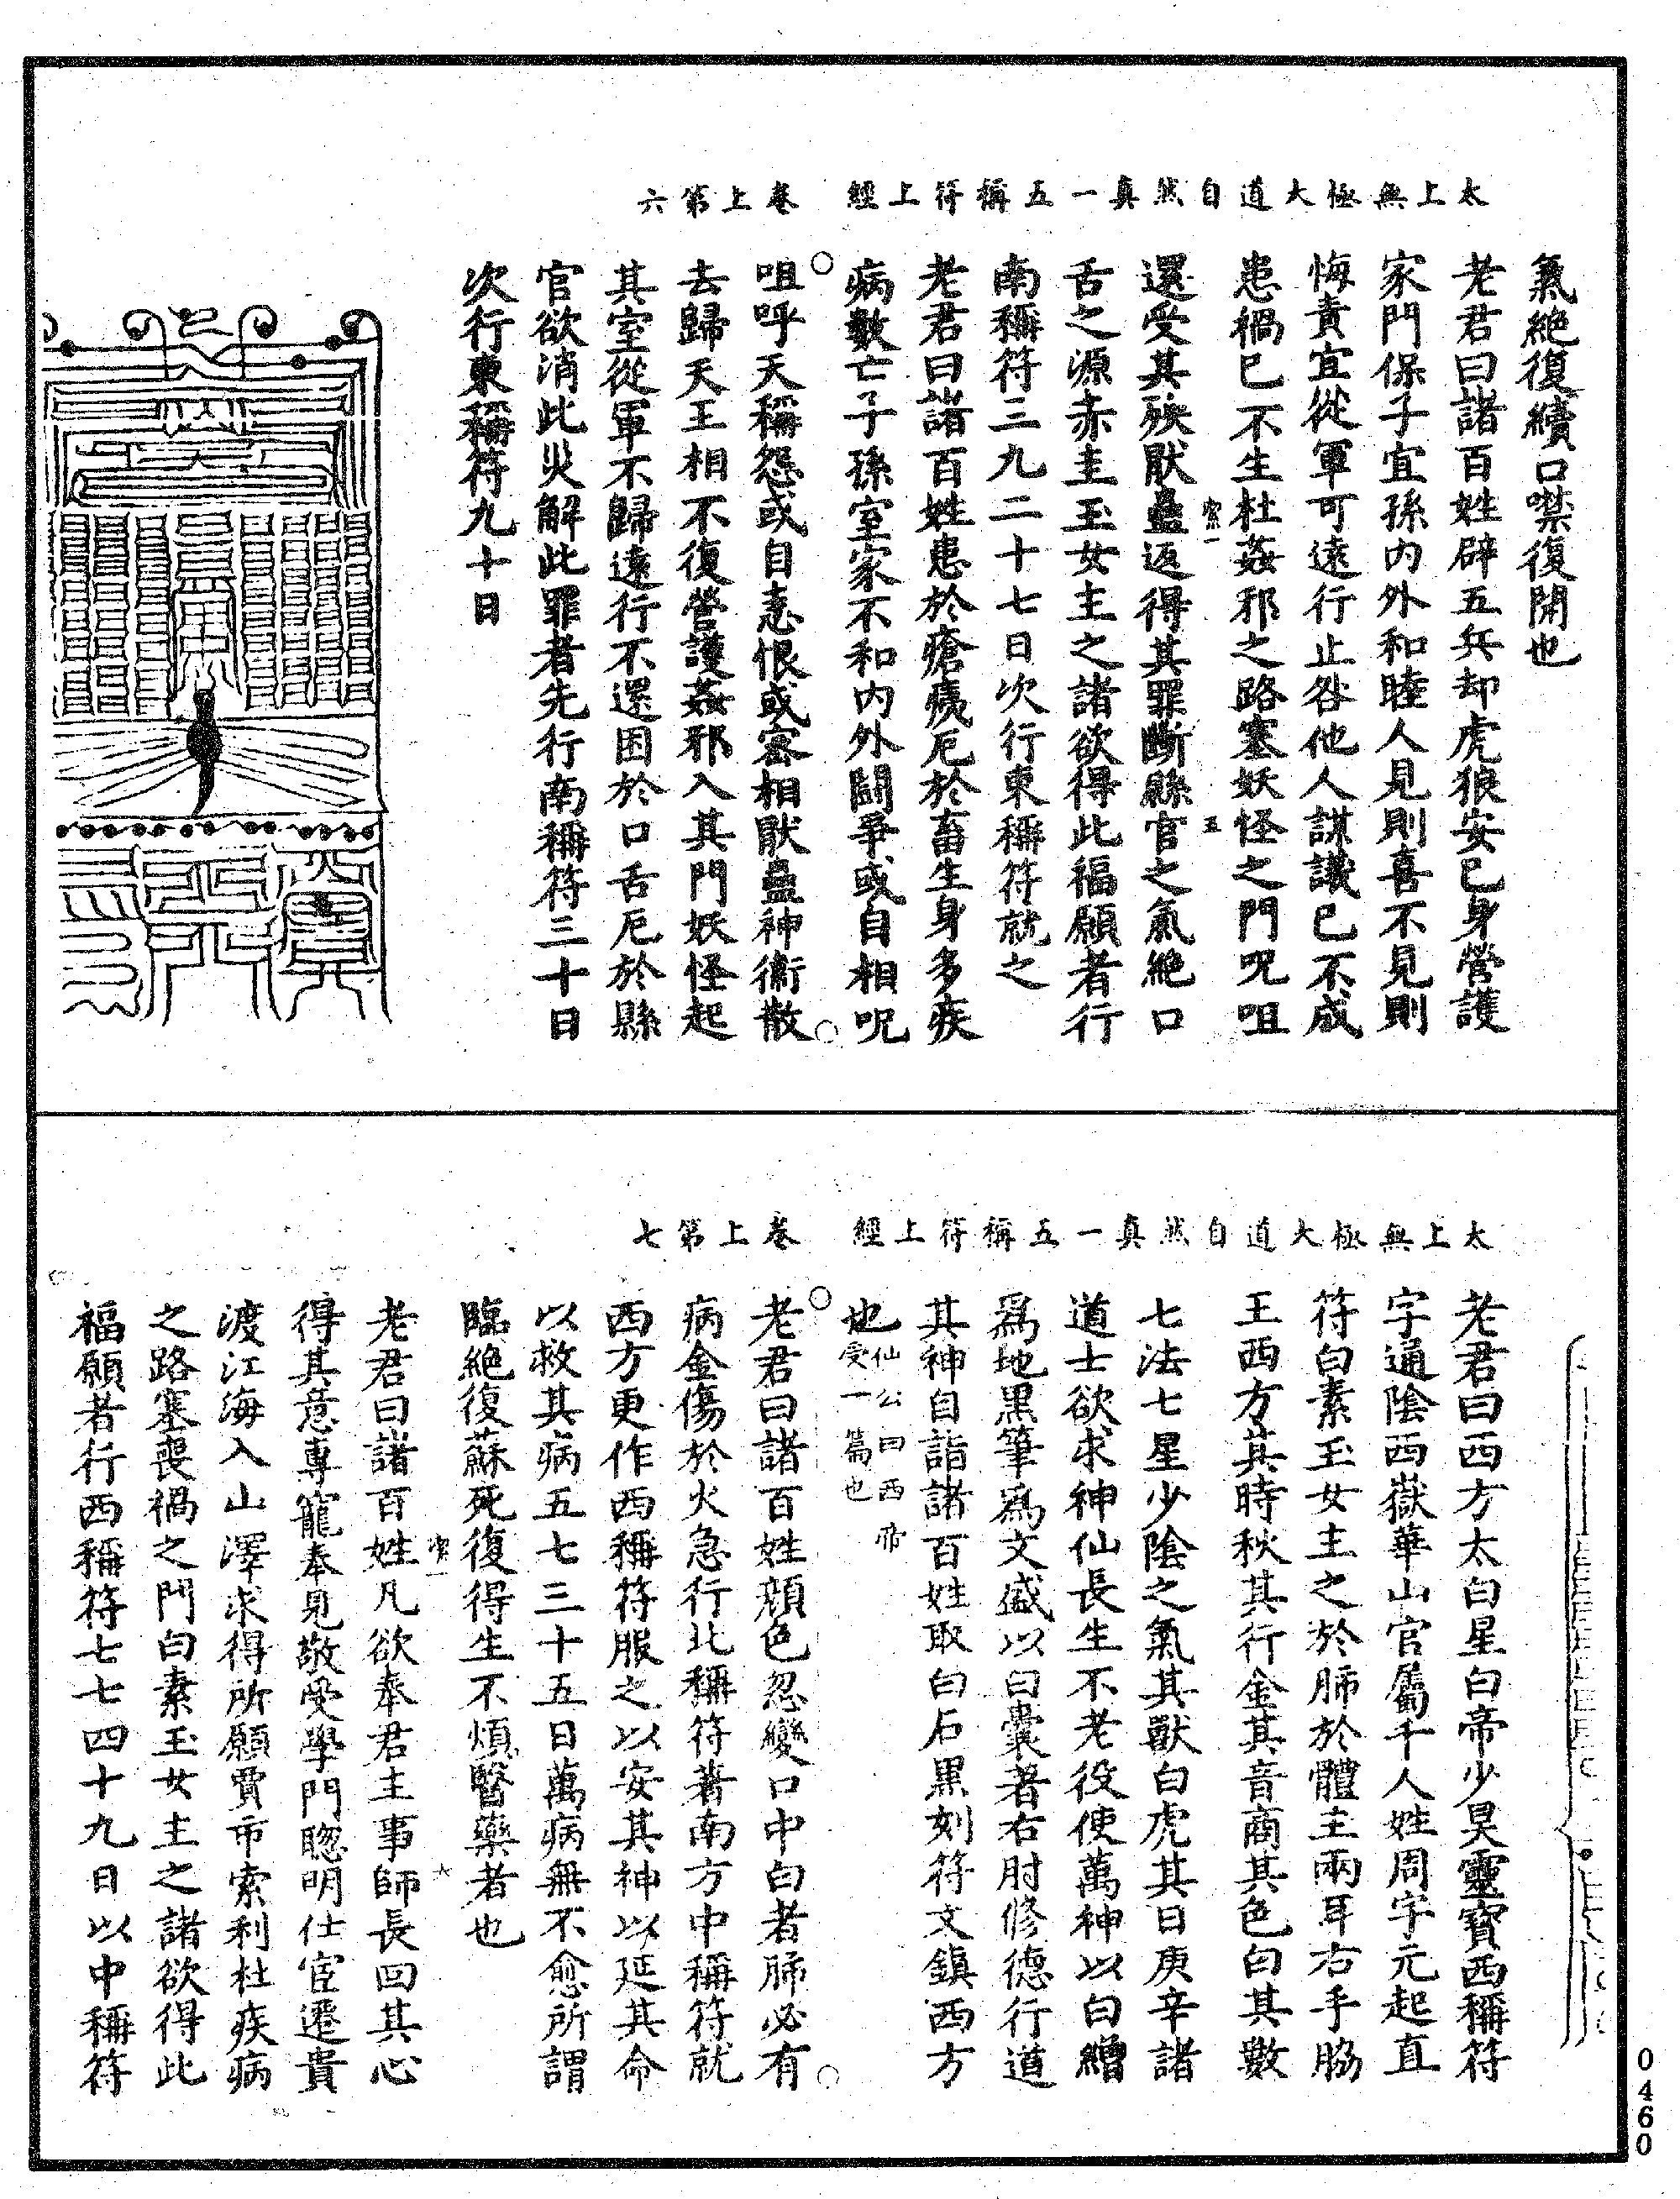 太上無極大道自然真一五稱符上經　卷上第六
氣絕復續口噤復開也
老君曰諸百姓辟五兵却虎狼安已身營護
家門保子宜孫內外和睦人見則喜不見則
悔責宜從軍可遠行止咎他人謀議已不成
患禍已不生杜姦邪之路塞妖怪之門呪咀
還受其殃猒蠱返得其罪斷縣官之氣絕口
舌之源赤圭玉女主之諸欲得此福願者行
南稱符三九二十七日次行東稱符就之
老君曰諸百姓患於瘡痍厄於畜生身多疾
病數亡子孫室家不和內外鬪爭或自相呪
咀呼天稱怨或自恚恨或密相猒蠱神衞散
去歸天王相不復營護姦邪入其門妖怪起
其室從軍不歸遠行不還困於口舌厄於縣
官欲消此災解此罪者先行南稱符三十日
次行東稱符九十日
太上無極大道自然真一五稱符上經　卷上第七
老君曰西方太白星白帝少昊靈寶西稱符
字通陰西嶽華山官屬千人姓周字元起直
符白素玉女主之於肺於體主兩耳右手脇
王西方其時秋其行金其音商其色白其數
七法七星少陰之氣其獸白虎其日庚辛諸
道士欲求神仙長生不老役使萬神以白繒
爲地黑筆爲文盛以白囊著右肘修德行道
其神自詣諸百姓取白石黑刻符文鎮西方
也仙公曰西帝受一篇也
老君曰諸百姓顏色忽變口中白者肺必有
病金傷於火急行北稱符著南方中稱符就
西方更作西稱符服之以安其神以延其命
以救其病五七三十五日萬病無不愈所謂
臨絕復蘇死復得生不煩醫藥者也
老君曰諸百姓凡欲奉君主事師長回其心
得其意專寵奉見敬受學門聰明仕宦遷貴
渡江海入山澤求得所願賈市索利杜疾病
之路塞喪禍之門白素玉女主之諸欲得此
福願者行西稱符七七四十九日以中稱符
0460